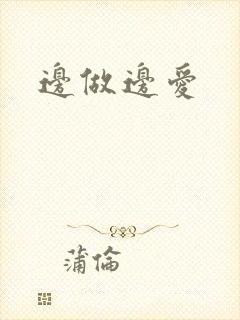 邊做邊愛
蒲倫